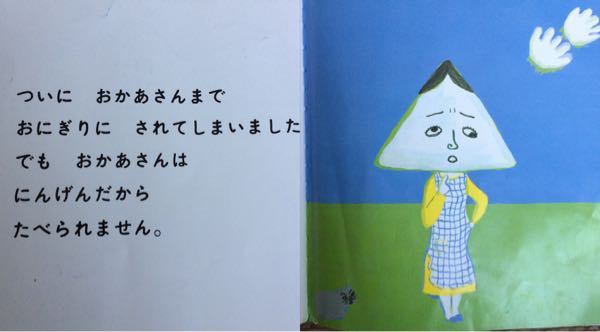 ついに　おかあさんまで
おにぎりに　されてしまいました
でも　おかあさんは
にんげんだから
たべられません。